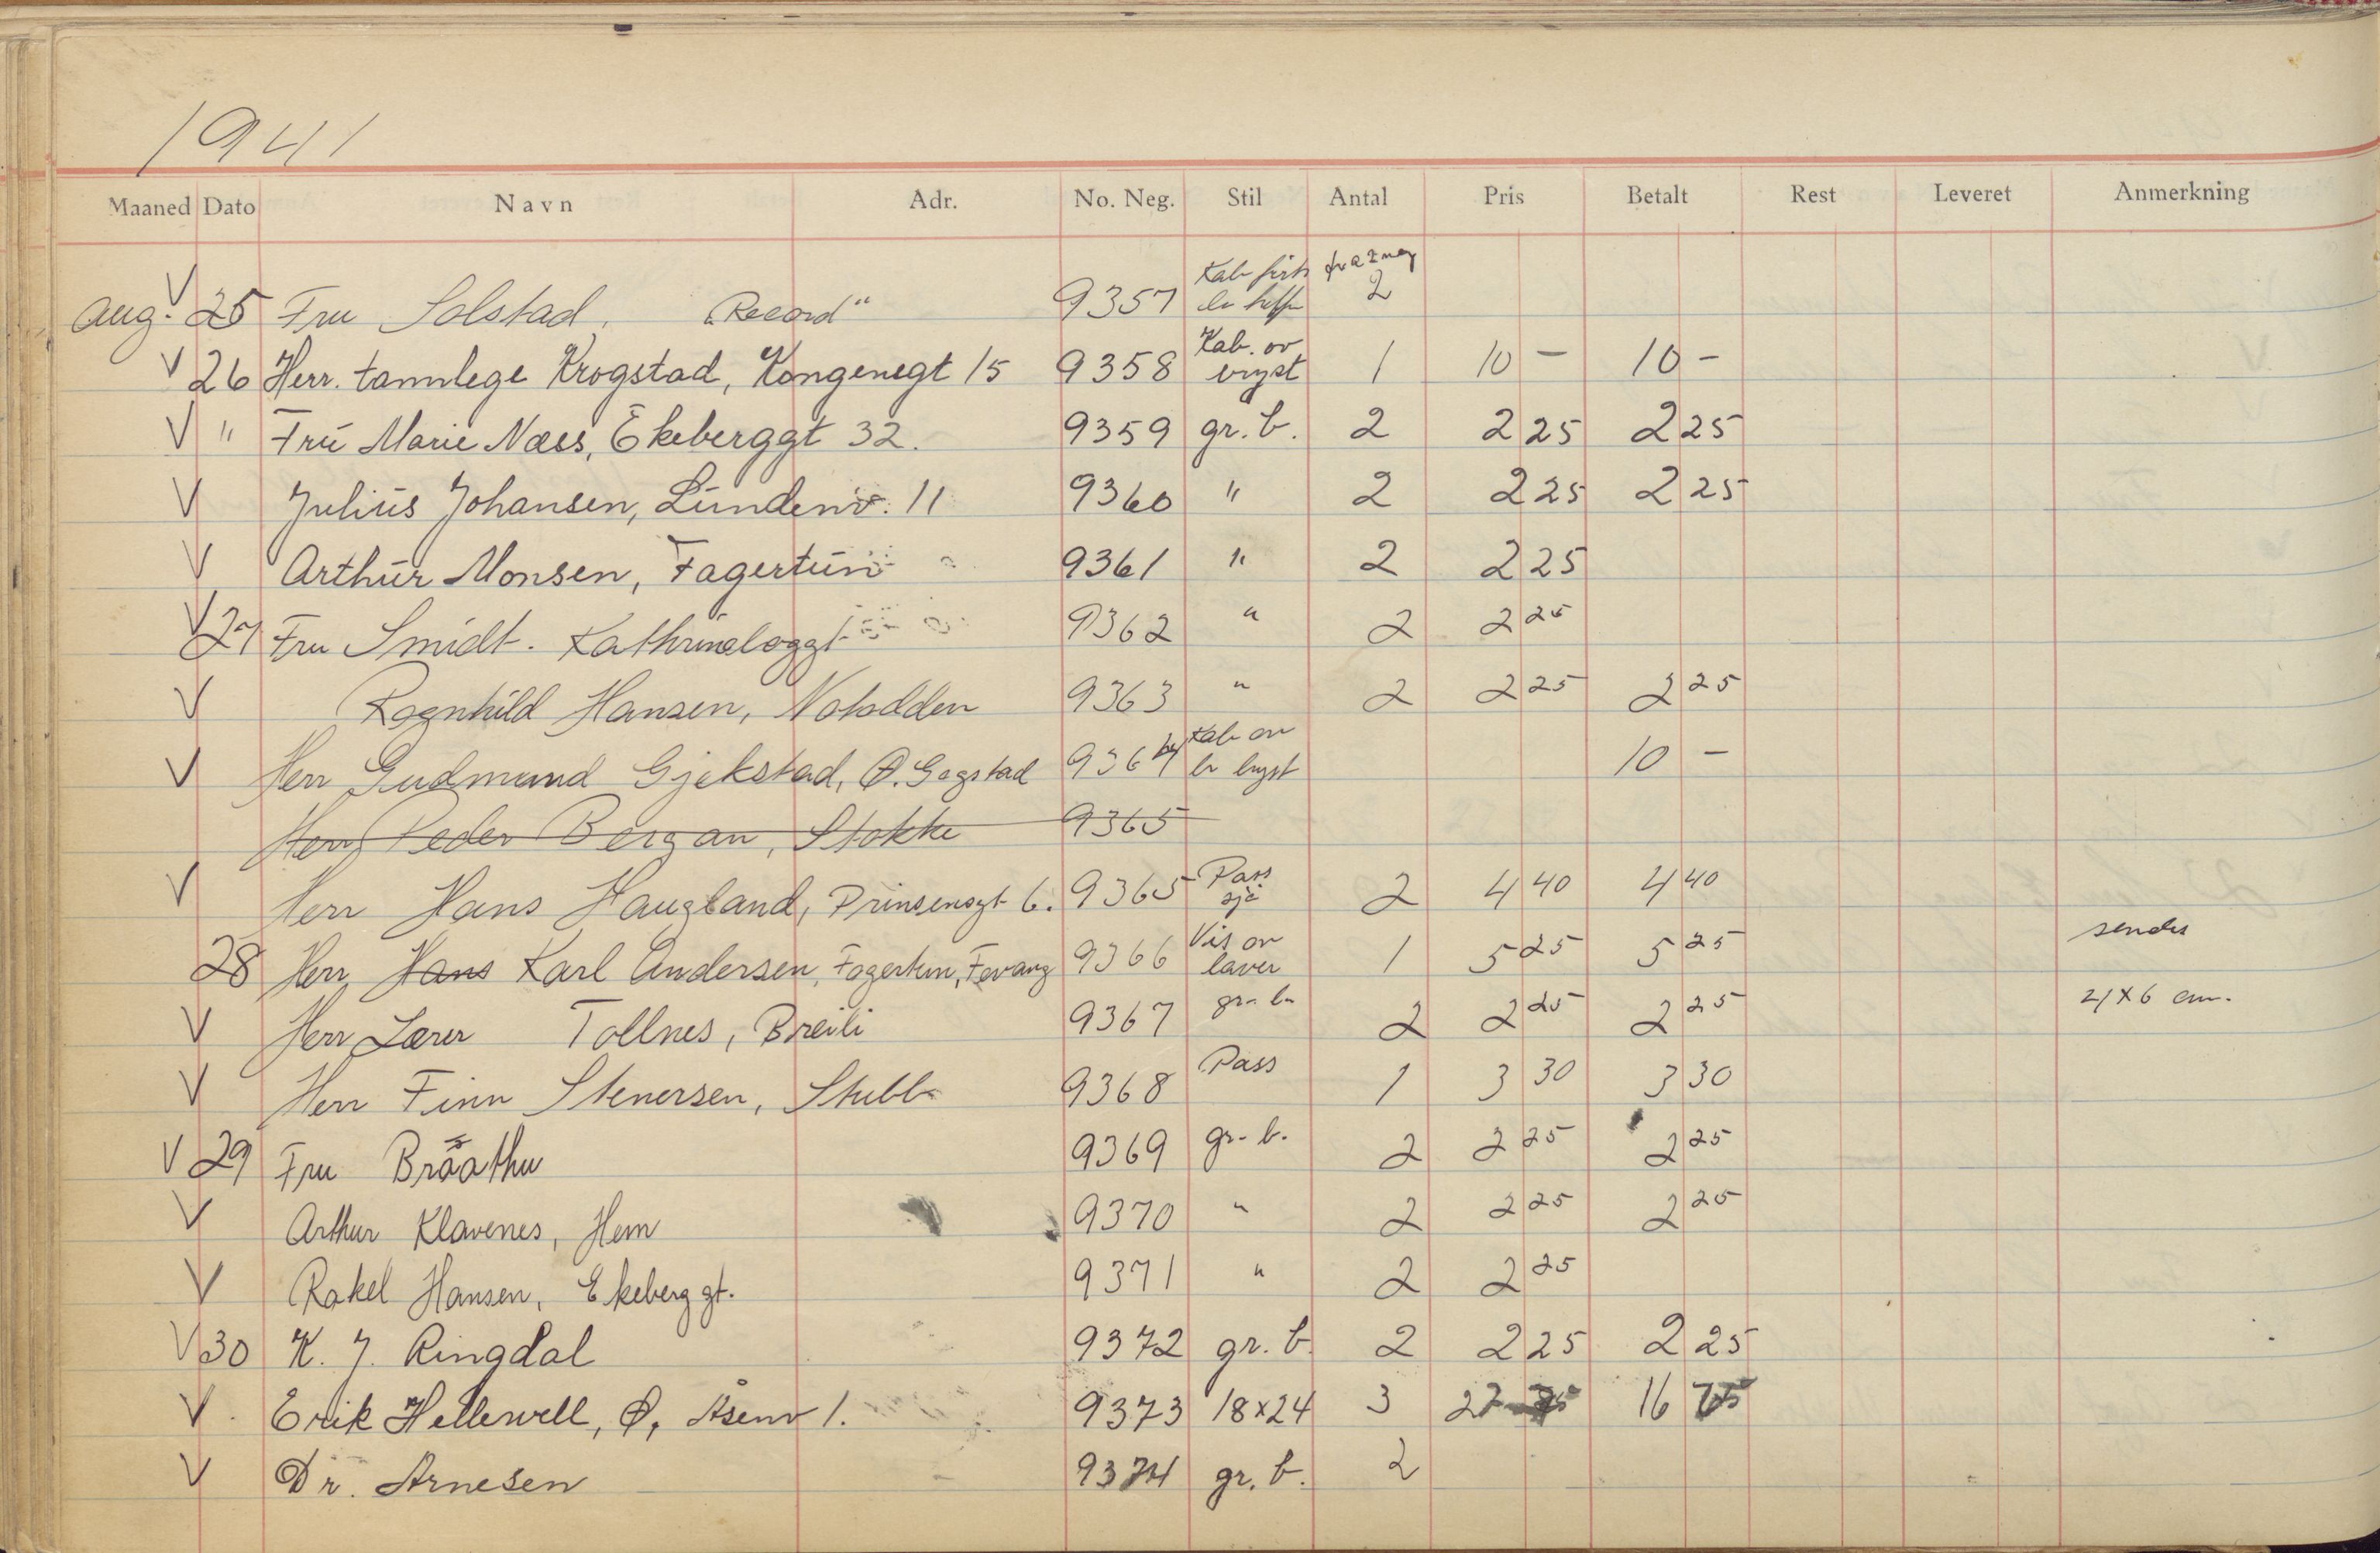 1941
Maaned Dato Navn Adr. No. Neg. Stil Antal Pris Betalt Rest Leveret Anmerkning
Aug. V 25 Fru Solstad, "Record" 9357 Kab 2
V 26 Herr. tannlege Krogstad, Kongensgt 15 9358 Kab. ov bryst 1 10 - 10 -
V " Fru Marie Næss, Ekeberggt 32. 9359 gr. b. 2 2 25 2 25
V Julius Johansen, Lundenv. 11 9360 " 2 2 25 2 25
V Arthur Monsen, Fagertun 9361 " 2 2 25
V 27 Fru Smidt. 9362 " 2 2 25
V Ragnhild Hansen, Notodden 9363 " 2 2 25 2 25
V Herr Gudmund Gjekstad, Ø. Gogstad 9364 Kab ov br bryst 10 -
Herr Peder Bergan, Stokke 9365
V Herr Hans Haugland, Prinsensgt 6. 9365 Pass sjø 2 4 40 4 40
28 Herr Hans Karl Andersen, Fagertun, Fevang 9366 Vis ov laver 1 5 25 5 25 sendes
V Herr Lærer Tollnes, Breili 9367 gr. b. 2 2 25 2 25 4 x 6 cm.
V Herr Finn Stenersen, Stubb 9368 Pass 1 3 30 3 30
V 29 Fru Brååthen 9369 gr. b. 2 2 25 2 25
V Arthur Klavenes, Hem 9370 " 2 2 25 2 25
V Rakel Hansen, Ekeberggt. 9371 " 2 2 25
V 30 K. J. Ringdal 9372 gr. b. 2 2 25 2 25
V. Erik Hellewell, Ø. Åsenv 1. 9373 18x24 3 27 16 75
V Dr. Arnesen 9374 gr. b. 2